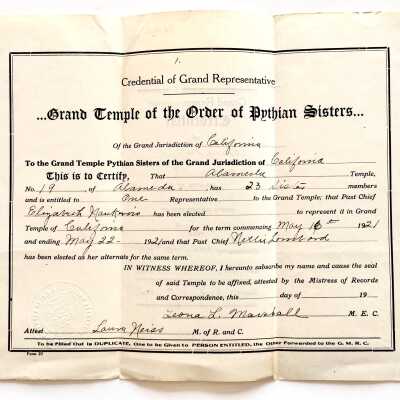 1.
Credential of Grand Representative
...Grand Temple of the Order of Pythian Sisters...
Of the Grand Jurisdiction of California
To the Grand Temple Pythian Sisters of the Grand Jurisdiction of California
This is to Certify, That Alameda Temple,
No. 19 of Alameda, has 23 members
and is entitled to One Representative to the Grand Temple; that Past Chief
Elizabeth has been elected to represent it in Grand
Temple of California for the term commencing May 16 1921
and ending May 22 - 1921 and that Past Chief Nellie Lombard
has been elected as her alternate for the same term.
IN WITNESS WHEREOF, I hereunto subscribe my name and cause the seal
of said Temple to be affixed, attested by the Mistress of Records
and Correspondence, this day of 19
Leona L. Marshall M. E. C.
Attest Laura Neiss M. of R. and C.
To be Filled Out in DUPLICATE, One to be Given to PERSON ENTITLED, the Other Forwarded to the G. M. R. C.
Form 20